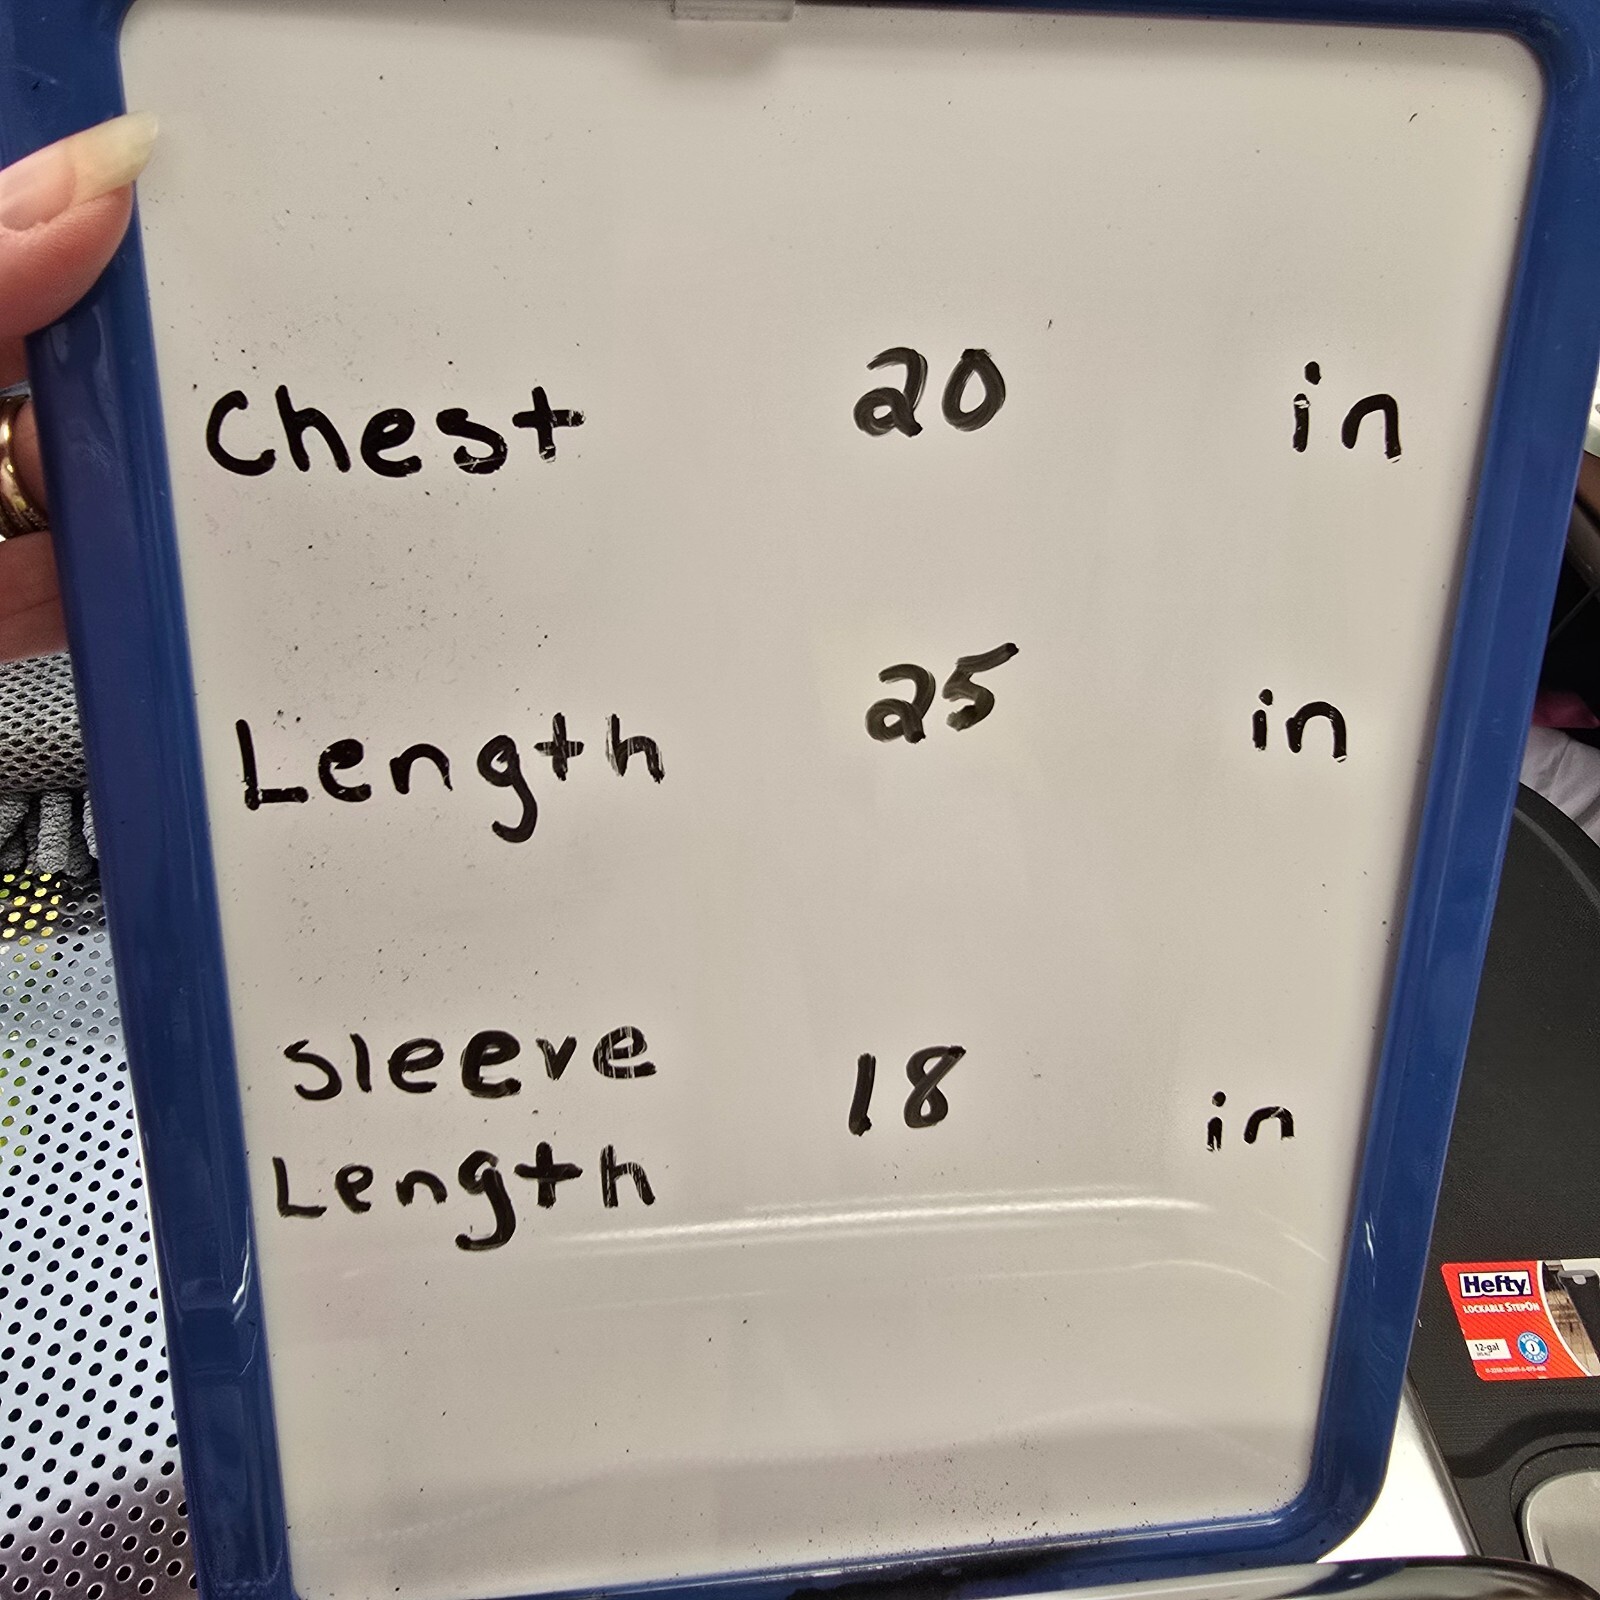 Chest 20 in
Length 25 in
Sleeve
Length 18 in
Hefty
LOCKABLE STEPON
12-gal
J